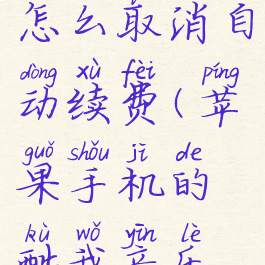 怎么取消自
dòng xù fèi píng
动续费(苹
guǒ shǒu jī de
果手机的
kù wǒ yīn lè
酷我音乐